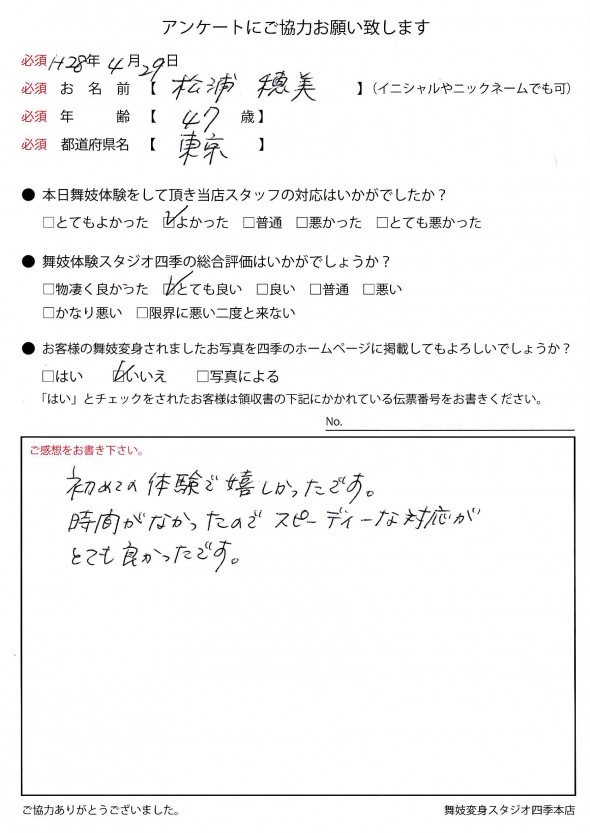 アンケートにご協力お願い致します
必須 H28年 4月 29日
必須 お 名 前 【 松浦 穂美 】（イニシャルやニックネームでも可）
必須 年 齢 【 47 歳】
必須 都道府県名 【 東京 】
● 本日舞妓体験をして頂き当店スタッフの対応はいかがでしたか？
□とてもよかった ☑よかった □普通 □悪かった □とても悪かった
● 舞妓体験スタジオ四季の総合評価はいかがでしょうか？
□物凄く良かった ☑とても良い □良い □普通 □悪い
□かなり悪い □限界に悪い二度と来ない
● お客様の舞妓変身されましたお写真を四季のホームページに掲載してもよろしいでしょうか？
□はい ☑いいえ □写真による
「はい」とチェックをされたお客様は領収書の下記にかかれている伝票番号をお書きください。
No.
ご感想をお書き下さい。
初めての体験で嬉しかったです。
時間がなかったのでスピーディーな対応が
とても良かったです。
ご協力ありがとうございました。 舞妓変身スタジオ四季本店